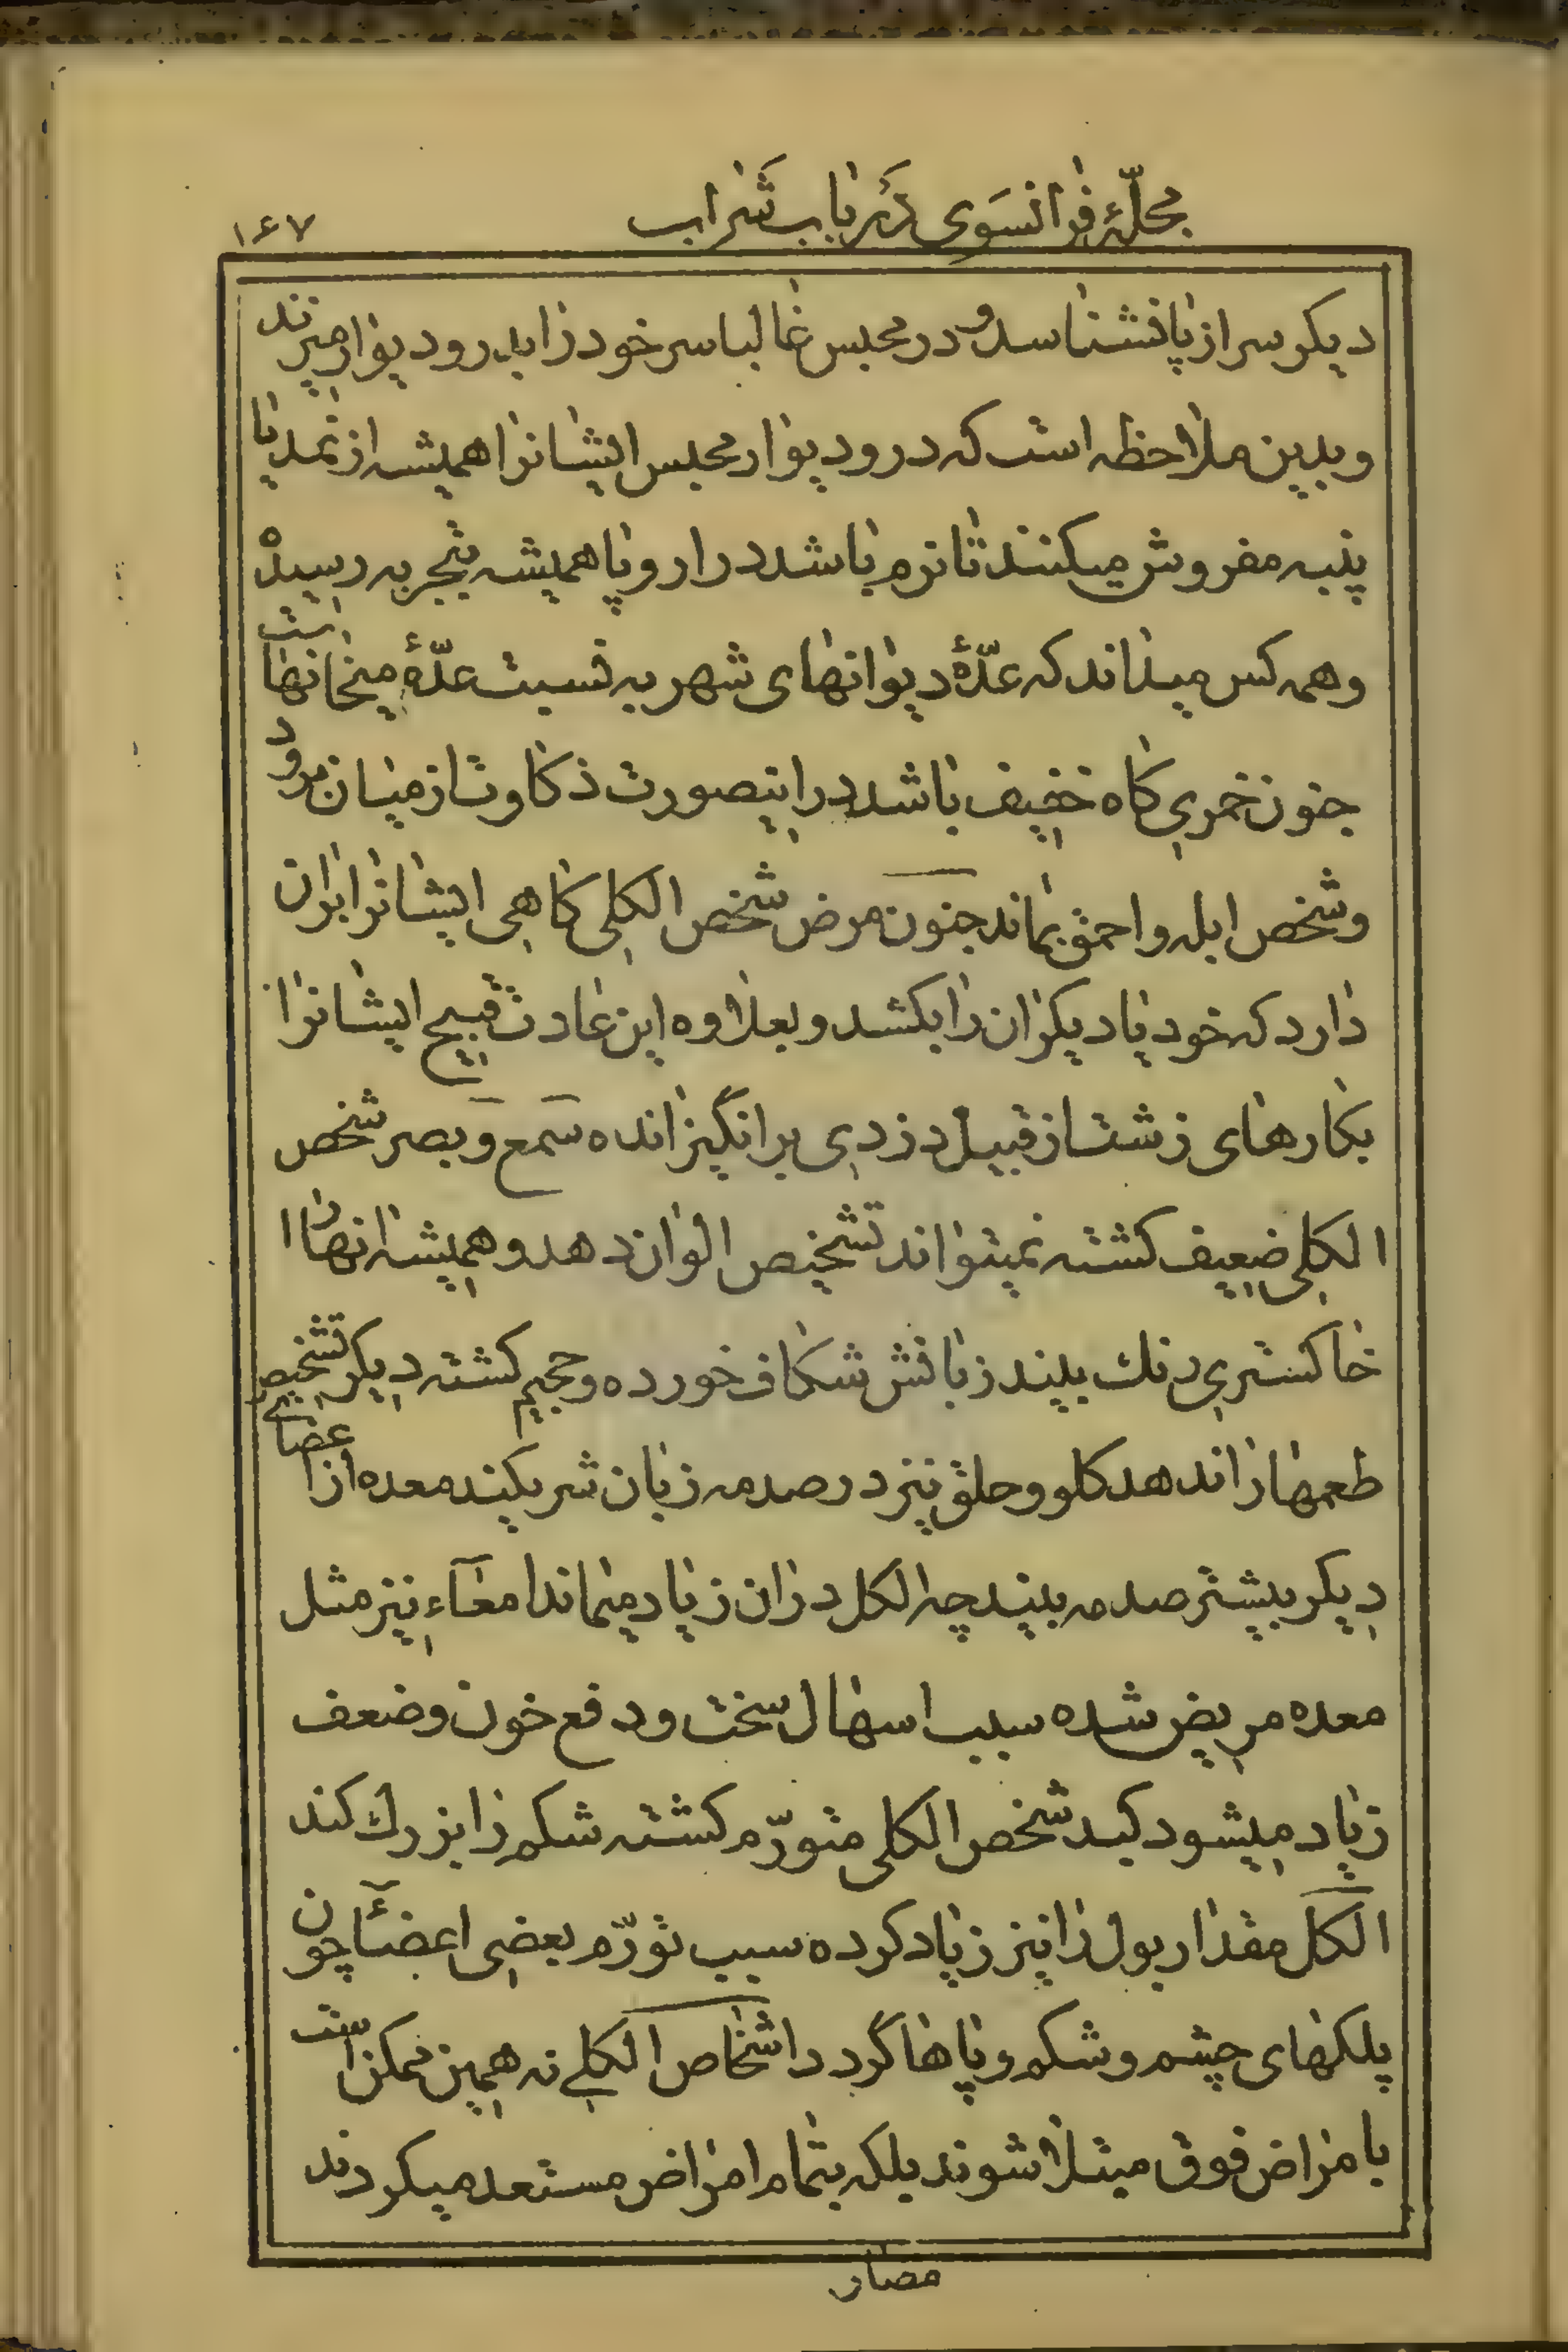 مجلّهٔ فرانسوی در باب شراب ۱۶۷
دیکر سر از پا نشناسد و در محبس غالبا سر خود را بدر و دیوار میزند
و بدین ملاحظه است که در و دیوار محبس ایشانرا همیشه از نمد یا
پنبه مفروش میکنند تا نرم باشد در اروپا همیشه بتجربه رسیده است
و همه کس میداند که عدّهٔ دیوانهای شهر به نسبت عدّهٔ میخانهاست
جنون خمری کاه خفیف باشد در اینصورت ذکاوت از میان برود
و شخص ابله و احمق بماند جنون مرض شخص الکلی کاهی ایشانرا بران
دارد که خود یا دیکران را بکشد و بعلاوه این عادت قبیح ایشانرا
بکارهای زشت از قبیل دزدی برانگیزانده سمع و بصر شخص
الکلی ضعیف کشته نمیتواند تشخیص الوان دهد و همیشه انها را
خاکستری رنك بیند زبانش شکاف خورده و حجیم کشته دیکر تشخیص
طعمها را ندهد کلو و حلق نیز در صدمه زبان شریکند معده از اعضای
دیکر بیشتر صدمه بیند چه الکل در ان زیاد میماند امعآء نیز مثل
معده مریض شده سبب اسهال سخت و دفع خون و ضعف
زیاد میشود کبد شخص الکلی متورّم کشته شکم را بزرك کند
الکل مقدار بول را نیز زیاد کرده سبب تورّم بعضی اعضآ چون
پلکهای چشم و شکم و پاها گردد اشخاص الکلی نه همین ممکن است
بامراض فوق مبتلا شوند بلکه بتمام امراض مستعد میکردند
مصار